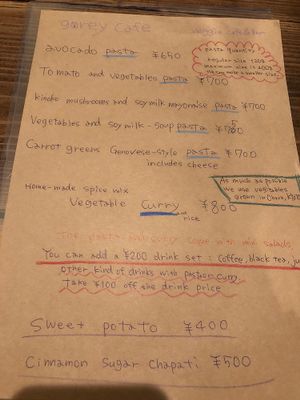 gorey cafe
veggie
avocado pasta ¥650
pasta quantity
regular size 120g
maximum size is 200g
Tomato and vegetables pasta ¥700
kinoko mushrooms and soy milk mayonnaise pasta ¥700
Vegetables and soy milk-soup pasta
Carrot greens Genovese-style pasta ¥700
includes cheese
As much as possible
we use vegetables
grown in
Home-made spice mix
Vegetable Curry and rice ¥800
The pasta and curry come with mix salads
You can add a ¥200 drink set : Coffee, black tea,
other kind of drinks with pasta or curry
take ¥100 off the drink price
Sweet potato ¥400
Cinnamon Sugar Chapati ¥500